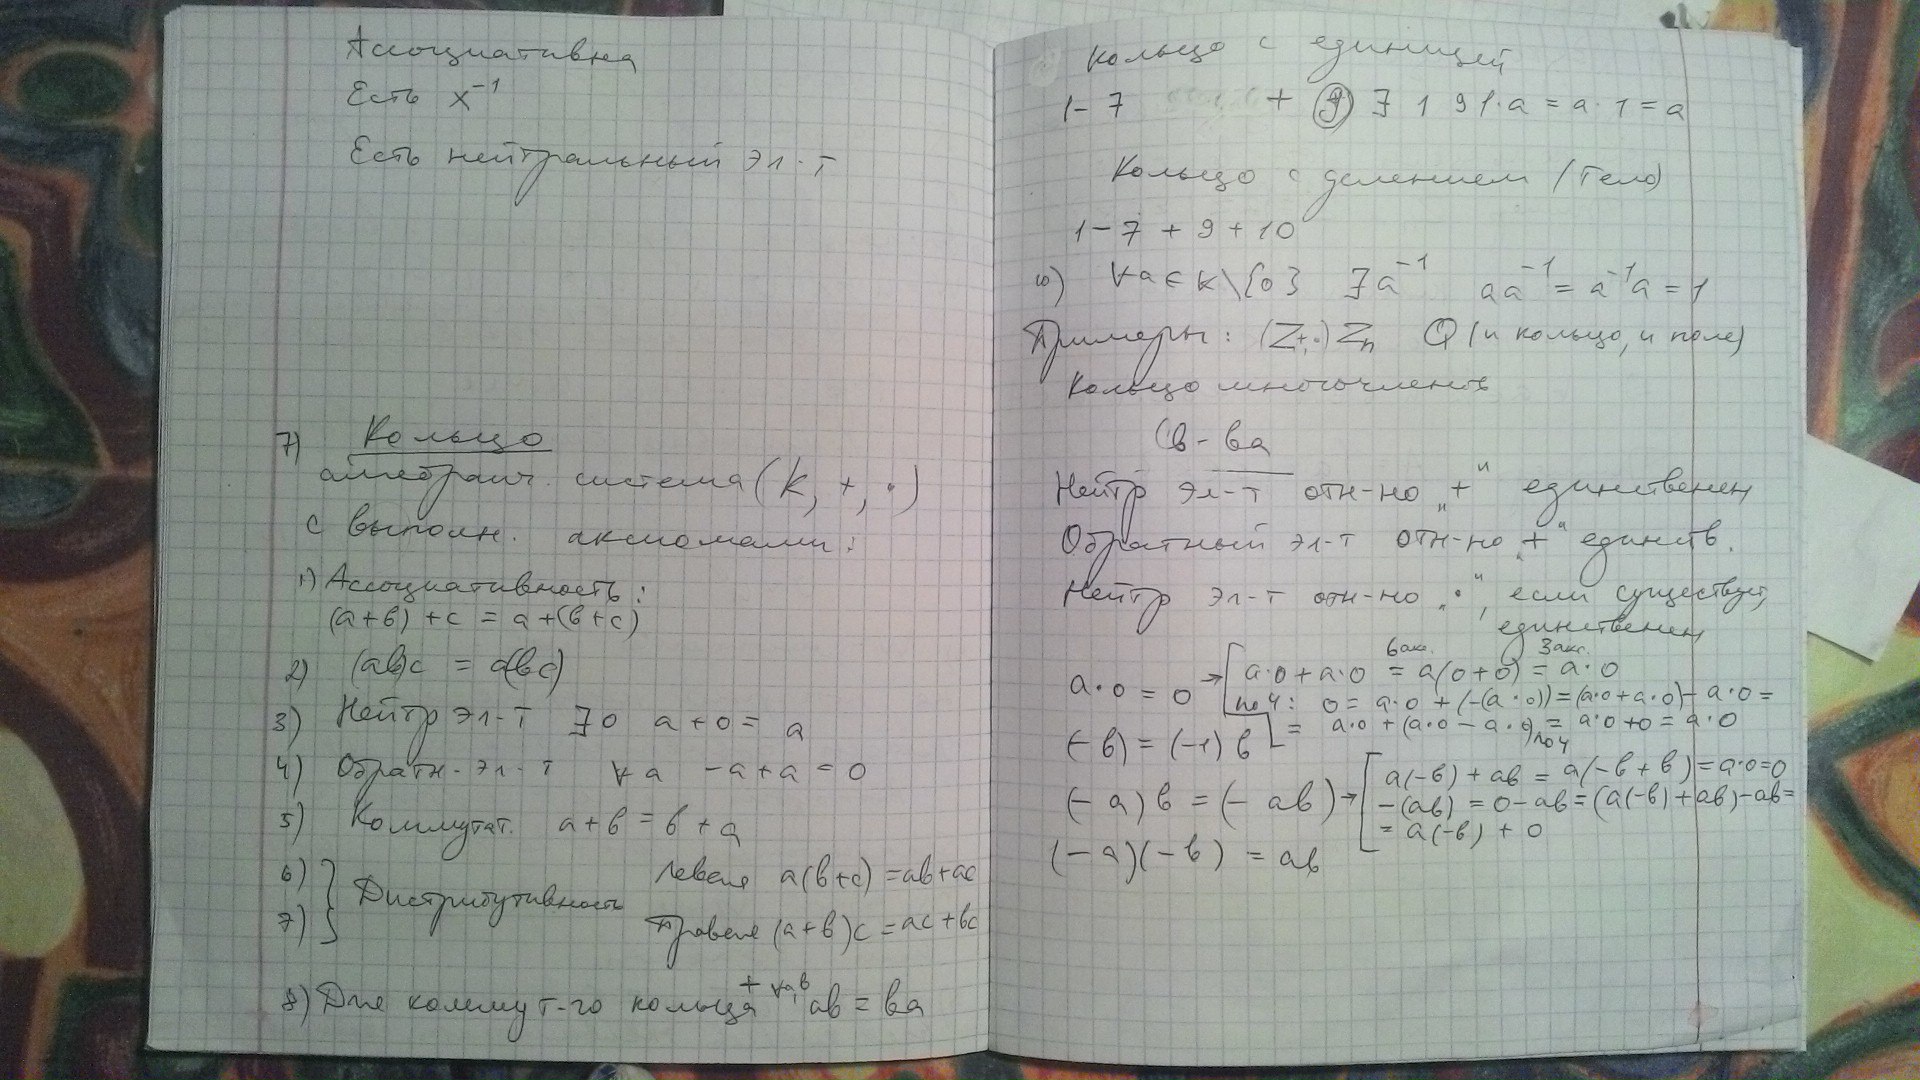 Ассоциативна
Есть x⁻¹
Есть нейтральный эл-т
7) Кольцо
алгебраич. система (K, +, ·)
с выполн. аксиомами:
1) Ассоциативность:
(a+b)+c = a+(b+c)
2) (ab)c = a(bc)
3) Нейтр эл-т ∃0 a+0= a
4) Обратн. эл-т ∀a -a+a=0
5) Коммутат. a+b=b+a
6) } Дистрибутивность левая a(b+c)=ab+ac
7) } Правая (a+b)c=ac+bc
8) Для коммут-го кольца + ∀a,b ab=ba
Кольцо с единицей
1-7 + 9 ∃ 1 ∋ 1·a = a·1 = a
Кольцо с делением (Тело)
1-7 + 9 + 10
10) ∀a∈K\{0} ∃a⁻¹ aa⁻¹ = a⁻¹a = 1
Примеры: (Z+,·) Zn Q (и кольцо, и поле)
Кольцо многочленов
b - ba
Нейтр эл-т отн-но „+" единственен
Обратный эл-т отн-но „+" единств.
Нейтр эл-т отн-но „·", если существует,
единственен
a·0 = 0 → [ a·0+a·0 = a(0+0) = a·0
6акс. 3акс.
по 4: 0 = a·0 + (-(a·0)) = (a·0+a·0) - a·0 =
= a·0 + (a·0 - a·0) = a·0+0 = a·0
по 4
(-b) = (-1)b
(-a)b = (-ab) → [ a(-b)+ab = a(-b+b) = a·0=0
-(ab) = 0-ab = (a(-b)+ab)-ab=
= a(-b) + 0
(-a)(-b) = ab